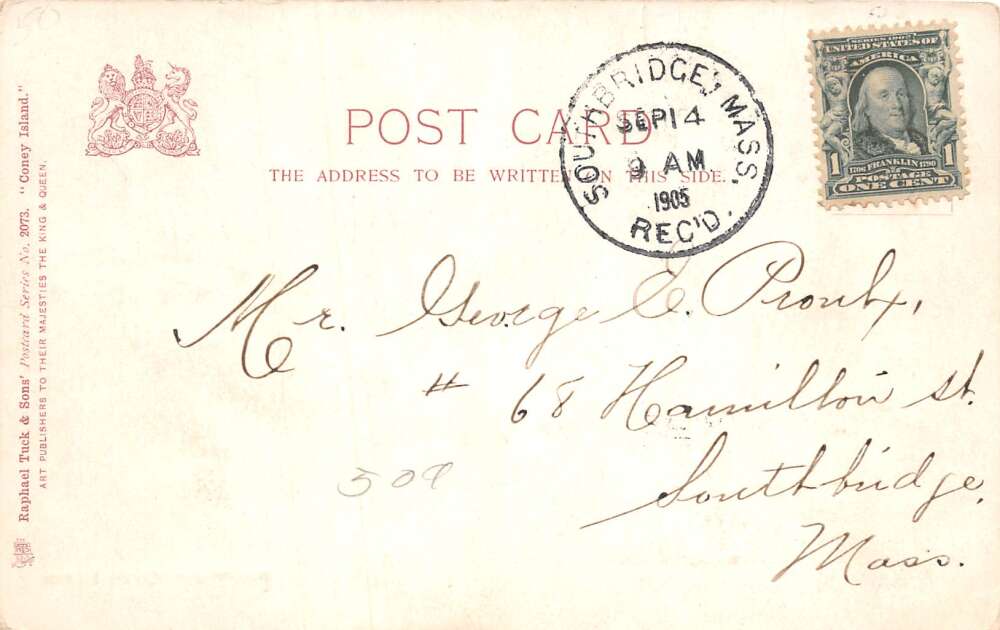 Raphael Tuck & Sons' Postcard Series No. 2073. "Coney Island."
ART PUBLISHERS TO THEIR MAJESTIES THE KING & QUEEN.
POST CARD
THE ADDRESS TO BE WRITTEN ON THIS SIDE.
SOUTHBRIDGE, MASS.
SEP 14
9 AM
1905
REC'D.
SERIES 1902
UNITED STATES OF
AMERICA
1706 FRANKLIN 1790
1 POSTAGE 1
ONE CENT
Mr. George E. Proulx,
# 68 Hamilton st.
Southbridge,
Mass.
509